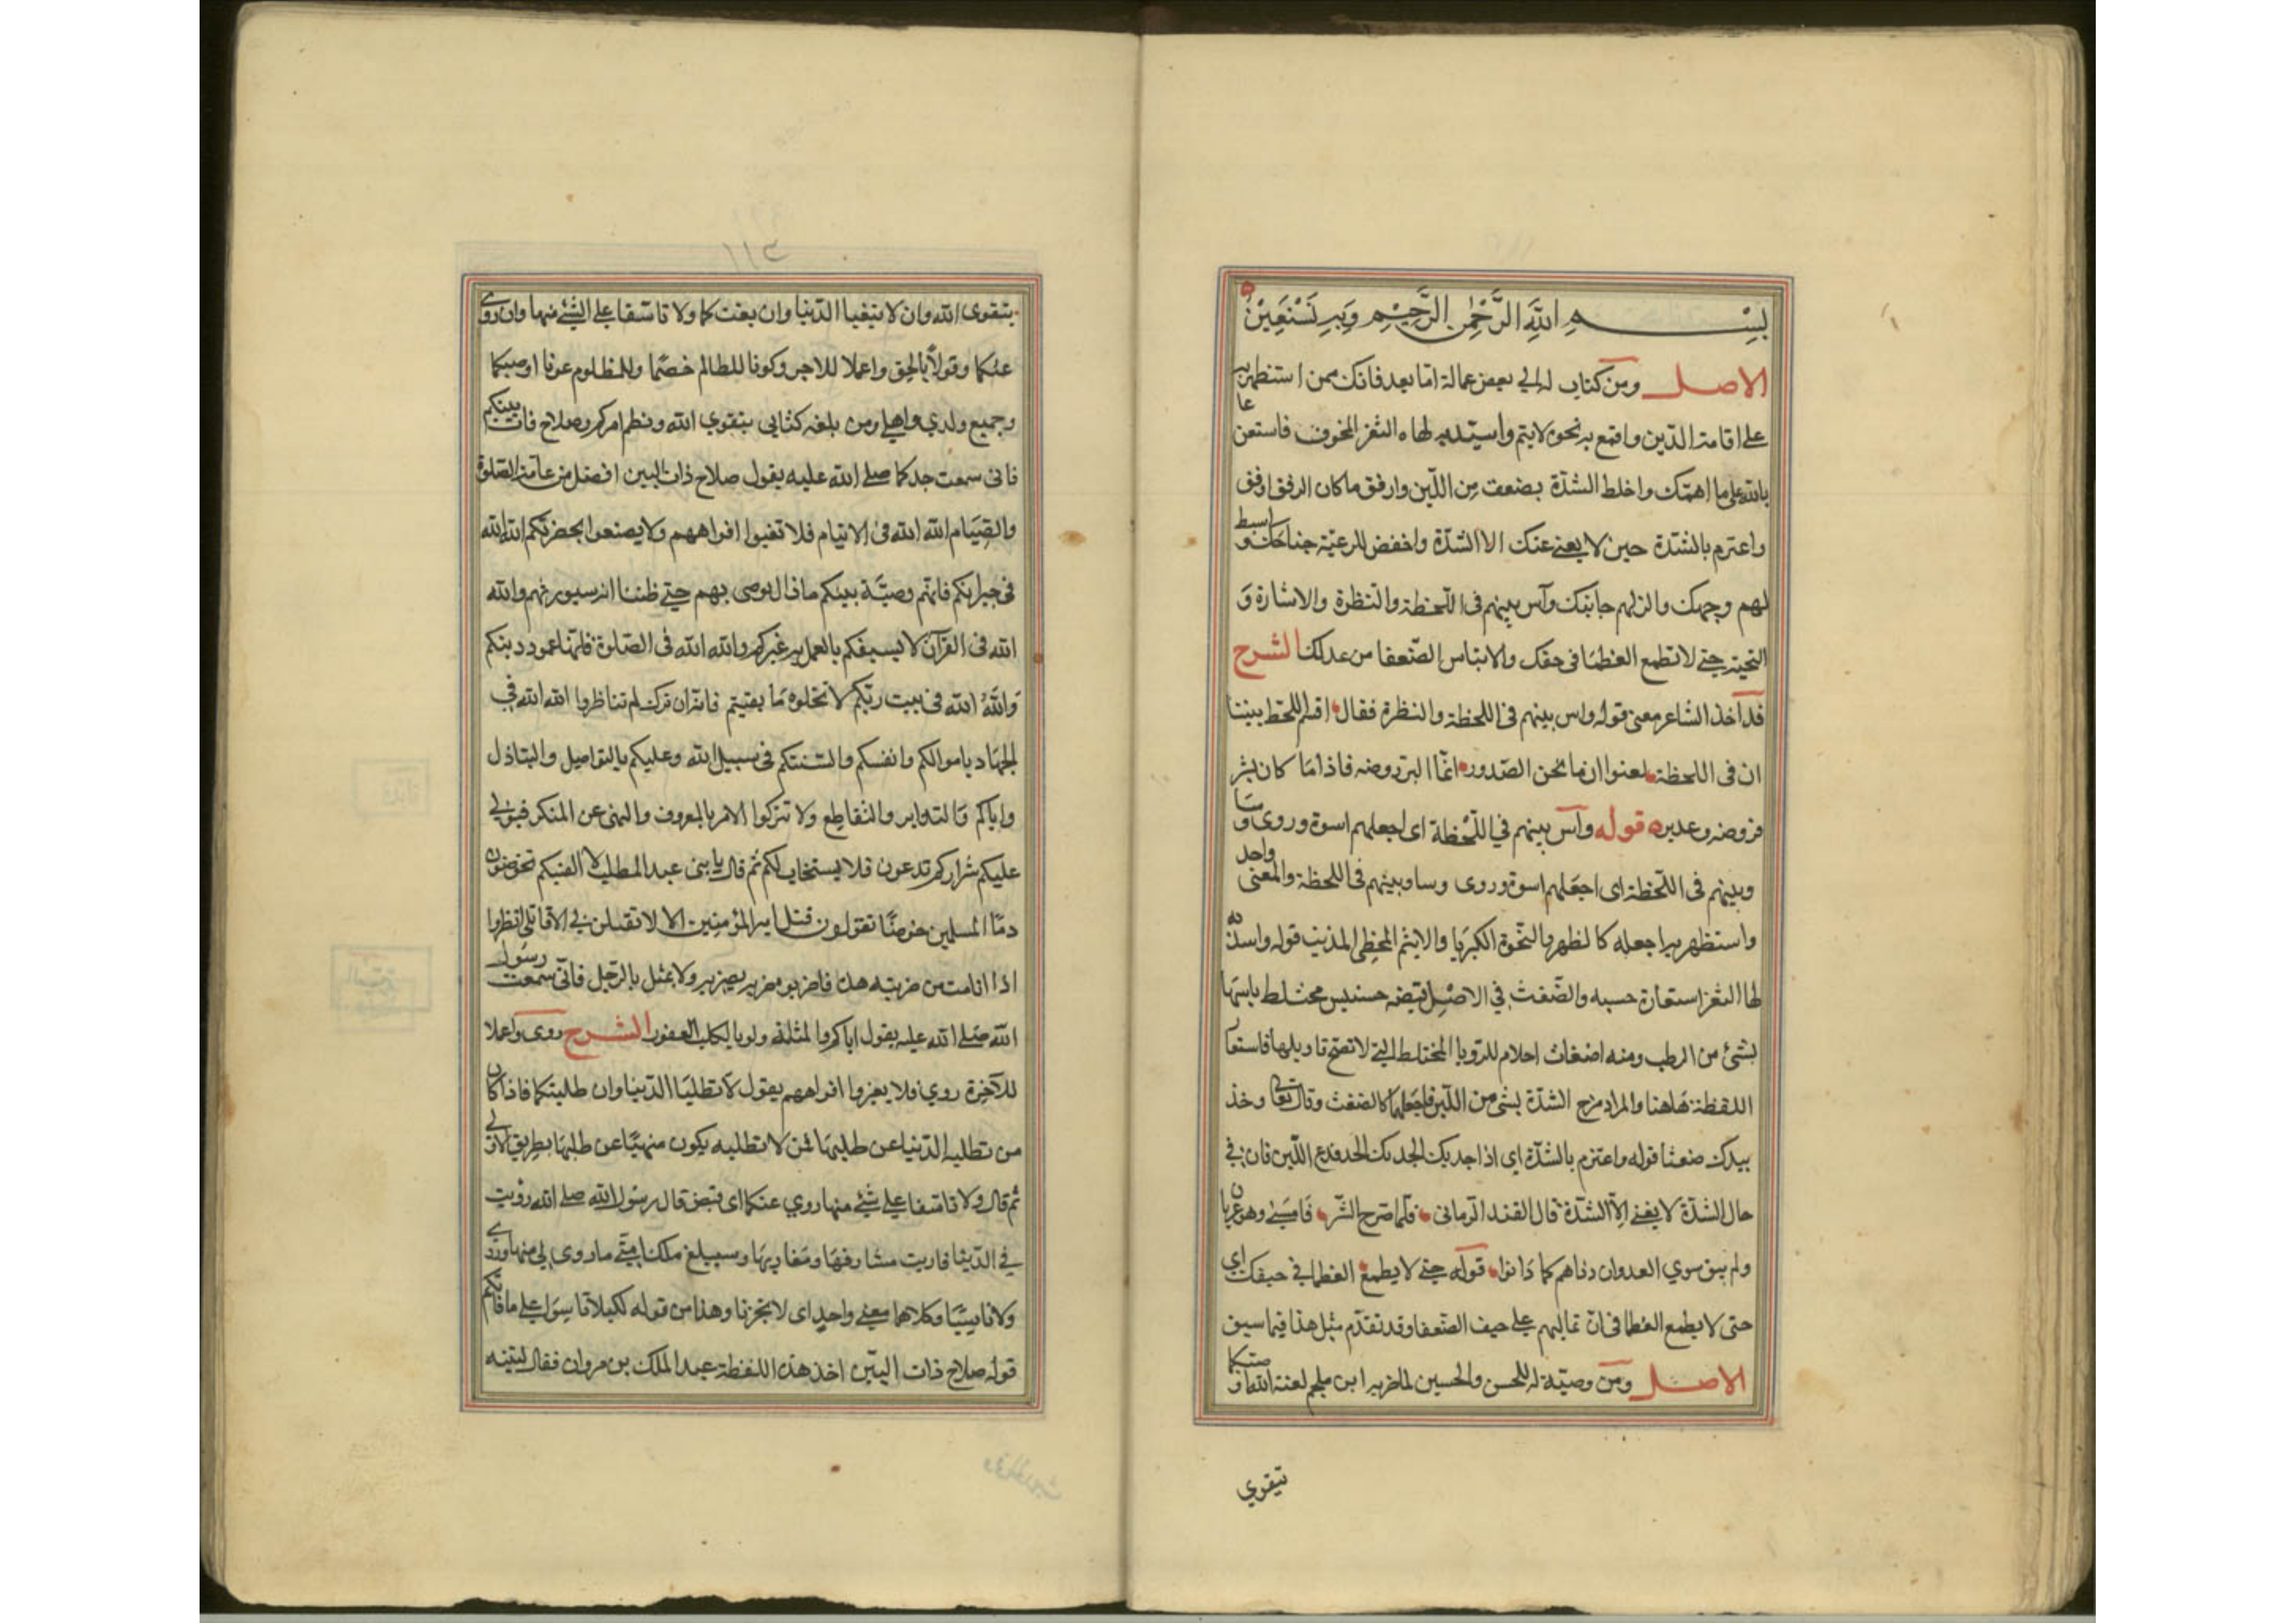 بسم الله الرحمن الرحيم وبه نستعين
الاصل ومن كتاب له الي بعض عماله اما بعد فانك ممن استظهر به
علي اقامة الدين واقمع به نخوة لايثم واسد به لهاه الثغر المخوف فاستعن
بالله علي ما اهمك واخلط الشدة بضغث من اللين وارفق ماكان الرفق ارفق
واعتزم بالشدة حين لا يعني عنك الا الشدة واخفض للرعية جناحك وابسط
لهم وجهك والن لهم جانبك وآس بينهم في اللحظة والنظرة والاشارة و
التحية حتي لا تطمع العظما في حيفك ولا يياس الضعفا من عدلك الشرح
قد اخذ الشاعر معني قوله واس بينهم في اللحظة والنظرة فقال اقسم اللحظ بيننا
ان في اللحظة لعنوان ما تحن الصدور انما البر روضه فاذا ما كان بشر
فروضه وغديره قوله وآس بينهم في اللحظة اى اجعلهم اسوة وروى وسا
وبينهم في اللحظة اى اجعلهم اسوة وروى وساو بينهم في اللحظة والمعنى واحد
واستظهر به اجعله كالظهر والنخوة الكبريا والايثم المخطى المذنب قوله واسد به
لها الثغر استعارة حسنه والضغث في الاصل قبضه حشيش مختلط يابسها
بشئ من الرطب ومنه اضغاث احلام للرويا المختلطة التي لا تصح تاويلها فاستعار
اللفظة هاهنا والمراد مزج الشدة بشئ من اللين فاجعلها كالضغث وقال تعالى وخذ
بيدك ضغثا قوله واعتزم بالشدة اي اذا جد بك الجد فدع اللين فان في
حال الشدة لا يغني الا الشدة قال الفند الزماني فلما صرح الشر فامسي وهو عريان
ولم يبق سوي العدوان دناهم كما دانوا قوله حتي لا يطمع العظما في حيفك اي
حتى لا يطمع العظما في ان تماليهم علي حيف الضعفا وقد تقدم مثل هذا فيما سبق
الاصل ومن وصية له للحسن والحسين لما ضربه ابن ملجم لعنة الله اوصيكما
بتقوي
١١٣
بتقوى الله وان لا تبغيا الدنيا وان بغتكما ولا تاسفا علي الشئ منها وان زوى
عنكما وقولا بالحق واعملا للاجر وكونا للظالم خصما وللمظلوم عونا اوصيكما
وجميع ولدي واهلي ومن بلغه كتابي بتقوي الله ونظم امركم وصلاح ذات بينكم
فانى سمعت جدكما صلے الله عليه يقول صلاح ذات البين افضل من عامة الصلوة
والصيام الله الله فى الايتام فلا تغبوا افواههم ولا يصنعوا بحضرتكم الله الله
فى جيرانكم فانهم وصية نبيكم مازال يوصى بهم حتي ظننا انه سيورثهم والله
الله فى القرآن لا يسبقكم بالعمل به غيركم والله الله فى الصلوة فانها عمود دينكم
والله الله فى بيت ربكم لا تخلوه ما بقيتم فانه ان ترك لم تناظروا الله الله في
الجهاد باموالكم وانفسكم والسنتكم فى سبيل الله وعليكم بالتواصل والتباذل
واياكم والتدابر والتقاطع ولا تتركوا الامر بالمعروف والنهى عن المنكر فيولي
عليكم شراركم تدعون فلا يستجاب لكم ثم قال يا بنى عبد المطلب لا الفينكم تخوضون
دما المسلمين خوضا تقولون قتل امير المؤمنين الا لا تقتلن بي الا قاتلي انظروا
اذا انا مت من ضربته هذه فاضربوه ضربه بضربه ولا يمثل بالرجل فانى سمعت رسول
الله صلے الله عليه يقول اياكم والمثلة ولو بالكلب العقور الشرح روى واعملا
للآخرة روي فلا يغبروا افواههم يقول لا تطلبا الدنيا وان طلبتكما فاذا كان
من تطلبه الدنيا عن طلبها فمن لا تطلبه يكون منهيا عن طلبها بطريق الاولي
ثم قال ولا تاسفا علي شئ منها زوي عنكما اى قبض قال رسول الله صلے الله زويت
لي الدنيا فاريت مشارقها ومغاربها وسيبلغ ملك امتي ما زوى لي منها وروي
ولا تاسيا وكلاهما بمعنے واحد اى لا تحزنا وهذا من قوله لكيلا تاسوا علي ما فاتكم
قوله صلاح ذات البين اخذ هذه اللفظة عبد الملك بن مروان فقال لبنيه